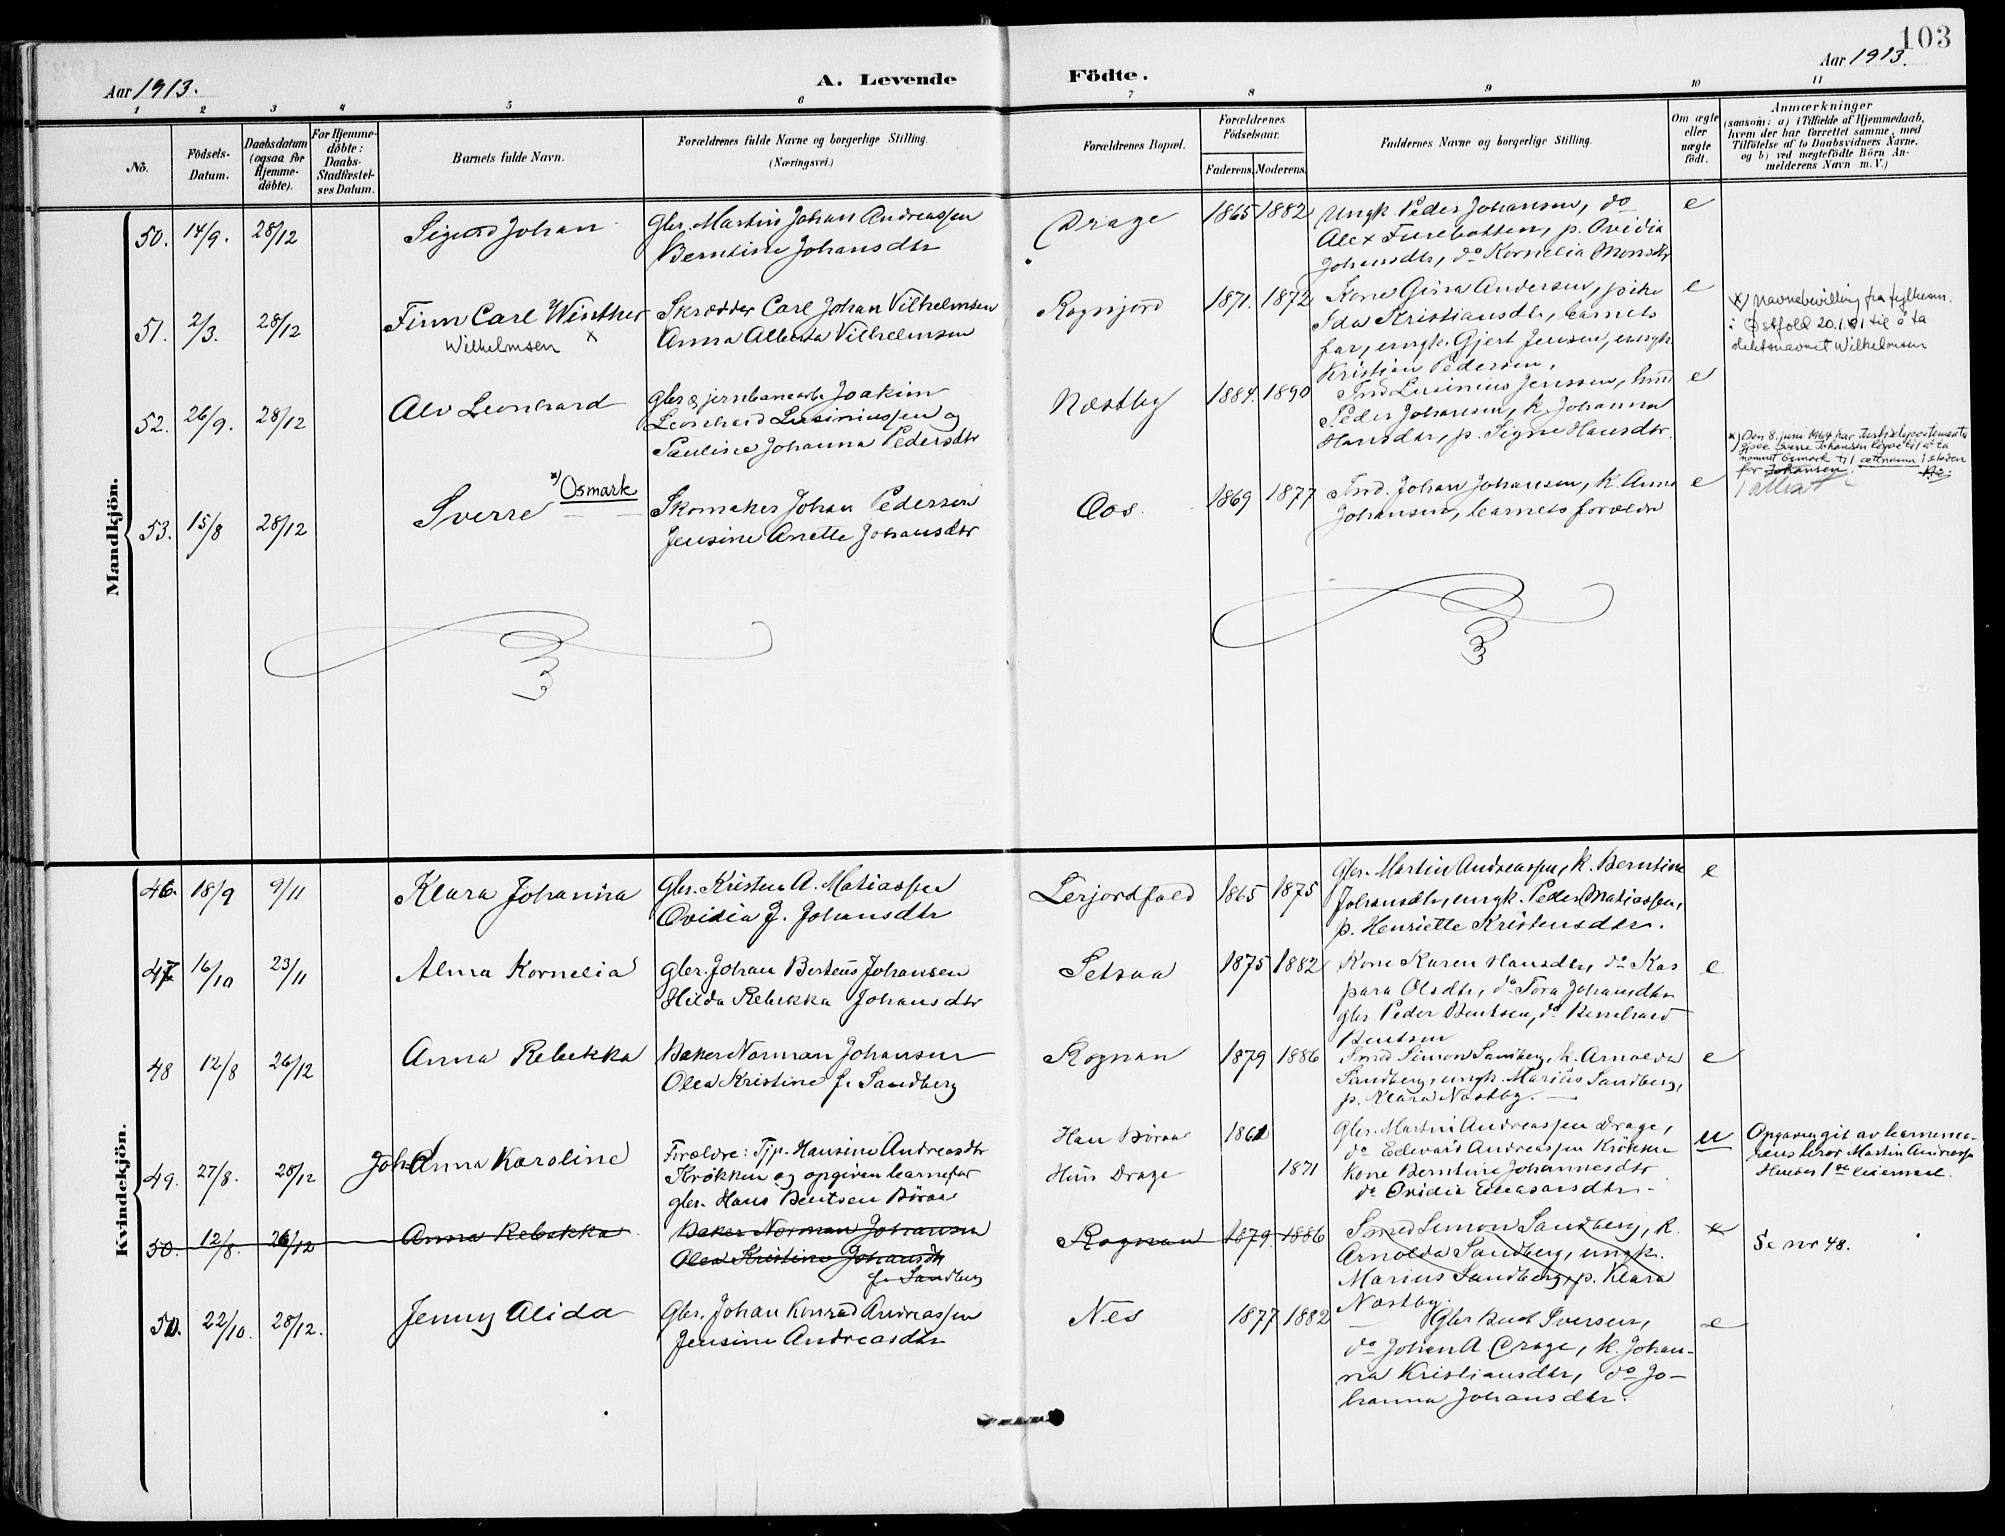 103
Aar 1913.
A. Levende
Födte.
Aar 1913.
1 2 3 4 5 6 7 8 9 10 11
No.
Födsels-
Datum.
Daabsdatum
(ogsaa for
Hjemme-
döbte).
For Hjemme-
döbte:
Daabs-
Stadfæstel-
ses Datum.
Barnets fulde Navn.
Forældrenes fulde Navne og borgerlige Stilling.
(Næringsvei.)
Forældrenes Bopæl.
Forældrenes
Födselsaar.
Faderens. Moderens.
Faddernes Navne og borgerlige Stilling.
Om ægte
eller
uægte
födt.
Anmærkninger
(saasom: a) i Tilfælde af Hjemmedaab,
hvem der har forrettet samme, med
Tilföielse af to Daabsvidners Navne,
og b) ved uægtefödte Börn An-
melderens Navn m. V.)
Mandkjön.
50. 14/9. 28/12
Sigurd Johan
Gbr. Martin Johan Andreassen
Berntine Johansdtr
Drage
1865 1882
Ungk. Peder Johansen, do
Alex Furebotten, p. Ovidia
Johansdtr, do Kornelia Monsdtr
e
51. 2/3. 28/12
Finn Carl Winther
Wilhelmsen x
Skrædder Carl Johan Vilhelmsen
Anna Alberta Vilhelmsen
Rognjord
1871. 1872
Kone Gina Andersen, pike
Ida Kristiansdtr, barnets
far, ungk. Gjert Jensen, ungk.
Kristian Pedersen.
e
x) Navnebevilling fra fylkesm.
i Østfold 20.1.61 til å ta
slektsnavnet Wilhelmsen
52. 26/9. 28/12
Alv Leonhard
Gbr & jernbanearb. Joakim
Leonhard Lusiniussen og
Pauline Johanna Pedersdtr
Næstby
1884. 1890
Smd Lusinius Jenssen, smd
Peder Johansen, k. Johanna
Hansdtr, p. Signe Hansdtr.
e
53. 15/8 28/12
Sverre
x) Osmark
Skomaker Johan Pedersen
Jensine Anette Johansdtr
Oos.
1869 1877
Smd. Johan Johansen, k. Anna
Johansen, barnets foreldre
e
x) Den 8. juni 1964 har Justisdepartementet
gjeve Sverre Johansen løyve til å ta
namnet Osmark til ættnamn i staden
for Johansen.
Kvindekjön.
46. 18/9 9/11
Klara Johanna
Gbr. Kristen A. Matiassen
Ovidia J. Johansdtr
Lerjordfald
1865 1875
Gbr. Martin Andreassen, k. Berntine
Johansdtr, ungk. Peder Matiassen,
p. Henriette Kristensdtr.
e
47 16/10 23/11
Alma Kornelia
Gbr. Johan Berteus Johansen
Hilda Rebekka Johansdtr
Setsaa
1875 1882
Kone Karen Hansdtr, do Kas
para Olsdtr, do Tora Johansdtr
gbr. Peder Bentsen, do Bernhard
Bentsen
e
48 12/8 26/12
Anna Rebekka
Baker Norman Johansen
Olea Kristine f. Sandberg
Rognan
1879 1886
Smed Simon Sandberg, k. Arnolda
Sandberg, ungk. Marius Sandberg,
p. Klara Næstby.
e
49. 27/8. 28/12
Johanna Karoline
Foreldre: Tjp. Hansine Andreasdtr
Krokken og opgiven barnefar
gbr. Hans Bentsen Böraa
Han Böraa
Hun Drage
1861
1871
Gbr. Martin Andreassen Drage,
do Edevard Andreassen Krökken
Kone Berntine Johannesdtr
do Ovidia Eliasarsdtr.
u
Opgaven git av barnemo-
rens bror Martin Andreass.
50. 12/8. 26/12
Anna Rebekka
Baker Norman Johansen
Olea Kristine Johansdtr
f. Sandberg
Rognan
1879. 1886
Smed Simon Sandberg, k.
Arnolda Sandberg, ungk.
Marius Sandberg, p. Klara
Næstby.
e
Se nr 48.
50. 22/10. 28/12.
Jenny Alida
Gbr. Johan Konrad Andreassen
Jensine Andreasdtr
Nes
1877 1882
Gbr Bent Iversen,
do Johan A. Drage, k. Johan-
na Kristiansdtr, do Jo-
hanna Johansdtr.
e